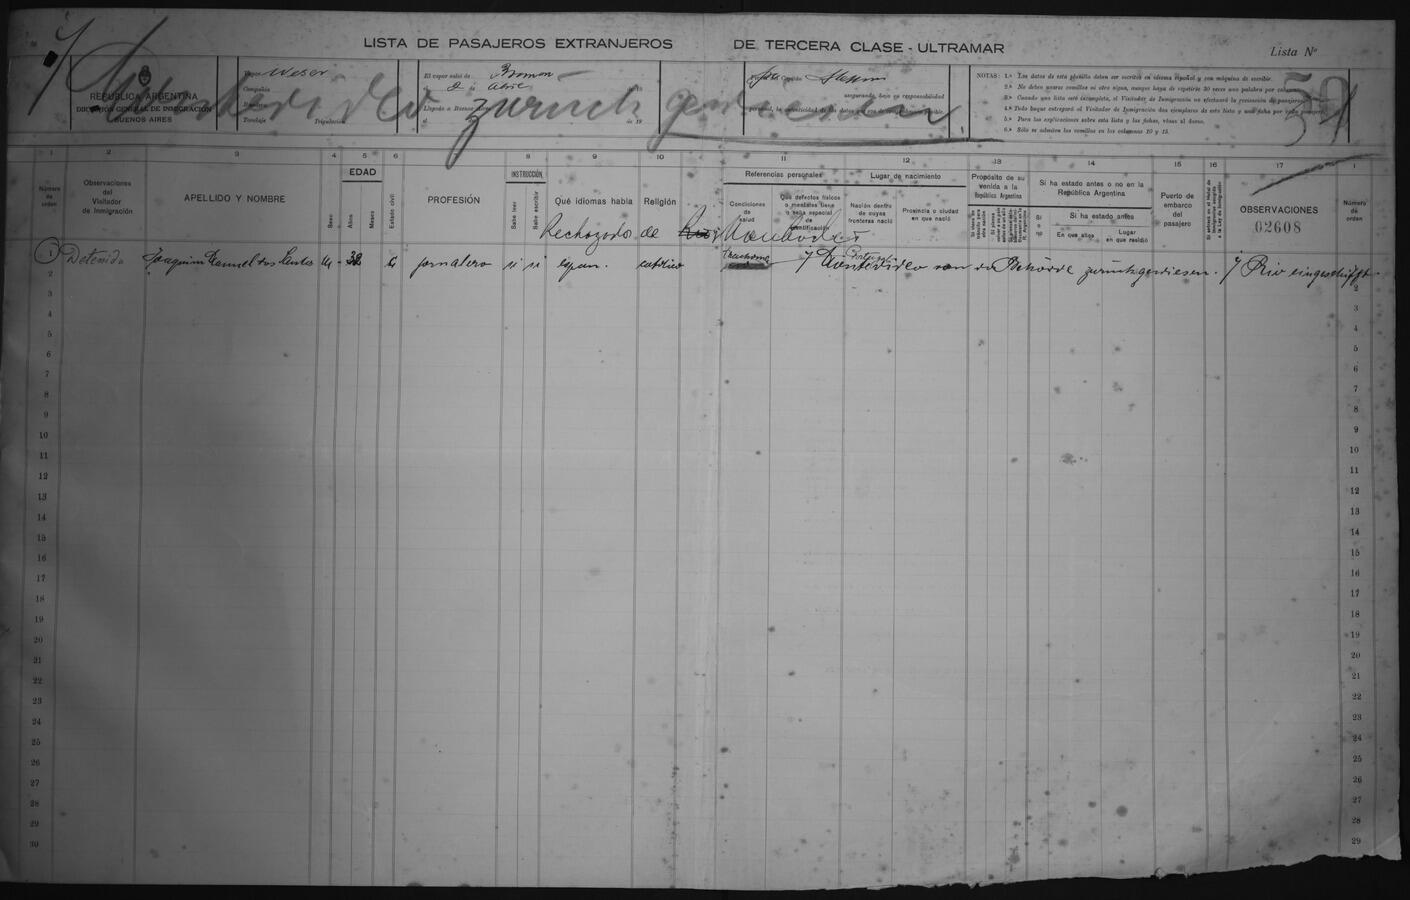 LISTA DE PASAJEROS EXTRANJEROS DE TERCERA CLASE - ULTRAMAR
Lista Nº
REPÚBLICA ARGENTINA
DIRECCIÓN GENERAL DE INMIGRACIÓN
BUENOS AIRES
Vapor Weser
Compañía
Bandera
Tonelaje Tripulación
El vapor salió de Bremen
el 2 de Abril de 19
Llegado a Buenos Aires
el de 19
Capitán
asegurando, bajo su responsabilidad
personal, la autenticidad de los datos
NOTAS: 1.ª Los datos de esta planilla deben ser escritos en idioma español y con máquina de escribir.
2.ª No deben usarse comillas ni otro signo, aunque haya de repetirse 30 veces una palabra por columna.
3.ª Cuando una lista esté incompleta, el Visitador de Inmigración no efectuará la revisación de pasajeros.
4.ª Todo buque entregará al Visitador de Inmigración dos ejemplares de esta lista y una ficha por cada pasajero.
5.ª Para las explicaciones sobre esta lista y las fichas, véase al dorso.
6.ª Sólo se admiten las comillas en las columnas 10 y 15.
Montevideo zurück gewiesen
1 2 3 4 5 6 8 9 10 11 12 13 14 15 16 17 1
Número de orden
Observaciones del Visitador de Inmigración
APELLIDO Y NOMBRE
Sexo
EDAD
Años
Meses
Estado civil
PROFESIÓN
INSTRUCCIÓN
Sabe leer
Sabe escribir
Qué idiomas habla
Religión
Referencias personales
Condiciones de salud
Qué defectos físicos o mentales tiene o seña especial de identificación
Lugar de nacimiento
Nación dentro de cuyas fronteras nació
Provincia o ciudad en que nació
Propósito de su venida a la República Argentina
Si ha estado antes o no en la República Argentina
Si o no
Si ha estado antes
En que años
Lugar en que residió
Puerto de embarco del pasajero
OBSERVACIONES
02608
Número de orden
Rechazados de Montevideo
1 Detenido Joaquim Manuel dos Santos M 38 C jornalero si si españ. católico Trachoma Portugal
Montevideo von der Behörde zurückgewiesen. Rio eingeschifft
2 2
3 3
4 4
5 5
6 6
7 7
8 8
9 9
10 10
11 11
12 12
13 13
14 14
15 15
16 16
17 17
18 18
19 19
20 20
21 21
22 22
23 23
24 24
25 25
26 26
27 27
28 28
29 29
30